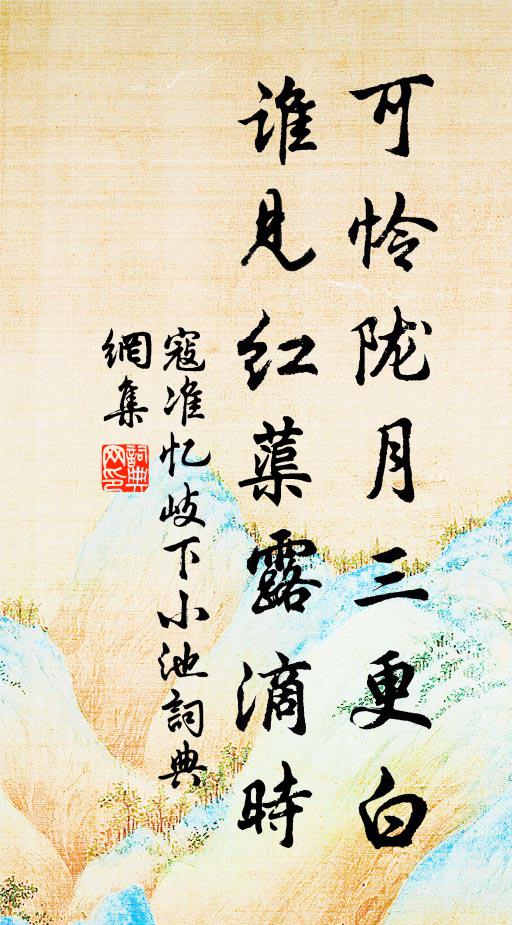 可怜陇月三更白
谁见红蕖露滴時
寇准忆歧下小池詞典
網集
詞典
网印